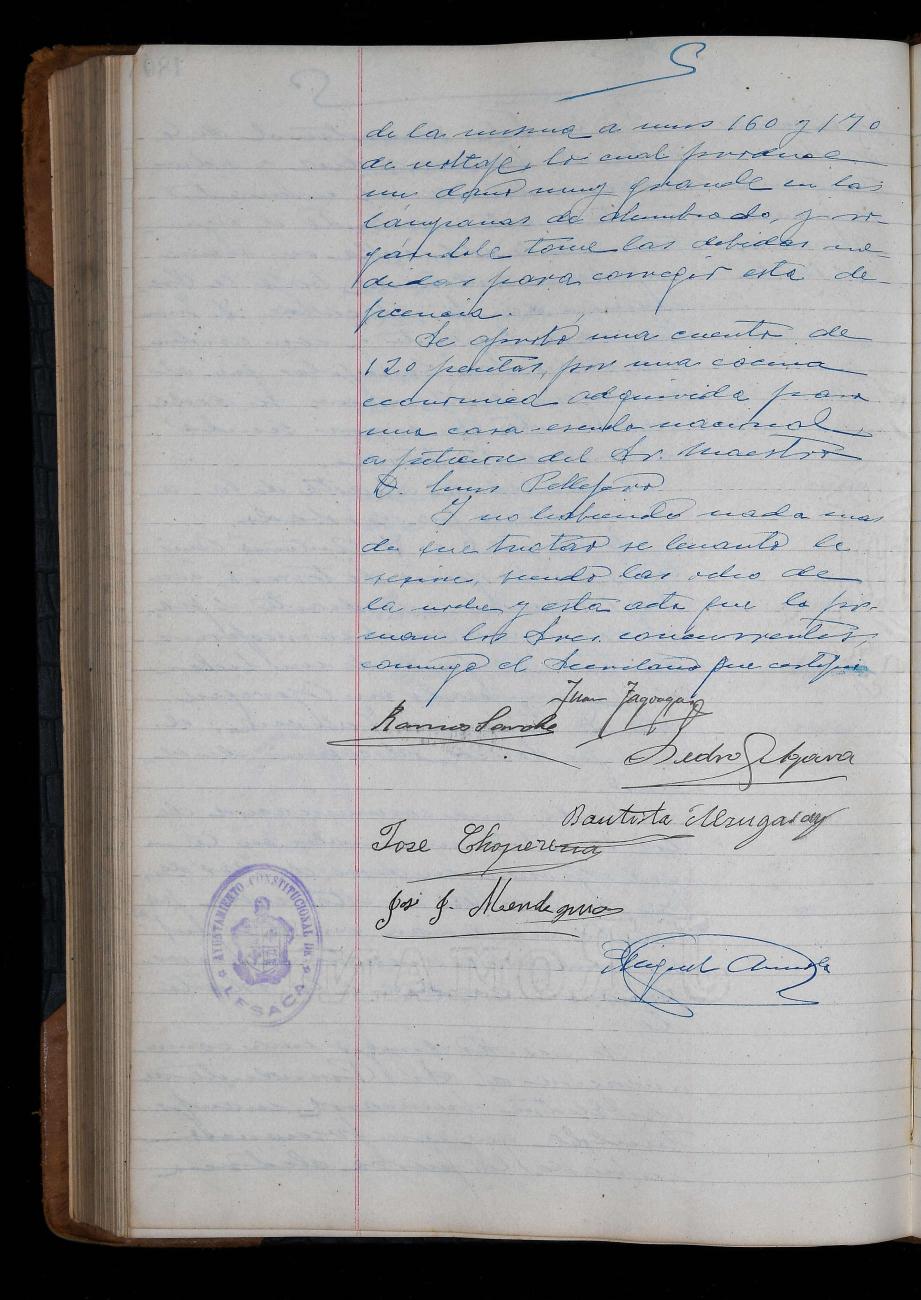 de la misma a unos 160 y 170
de voltaje, lo cual produce
un daño muy grande en las
lámparas de alumbrado, y ro-
gándole tome las debidas me-
didas para corregir esta de-
ficiencia.
Se aprobó una cuenta de
120 pesetas, por una cocina
económica adquirida para
una casa-escuela nacional
a petición del Sr. Maestro
D. Luis Pellejero
Y no habiendo nada mas
de que tractar se levanto la
sesion, siendo las ocho de
la noche y esta acta que la fir-
man los Sres. concurrentes
conmigo el Secretario que certifico
Juan
Ramos
Pedro
Bautista
José Choperena
José J. Mendeguia
Miguel
AYUNTAMIENTO CONSTITUCIONAL DE
LESACA